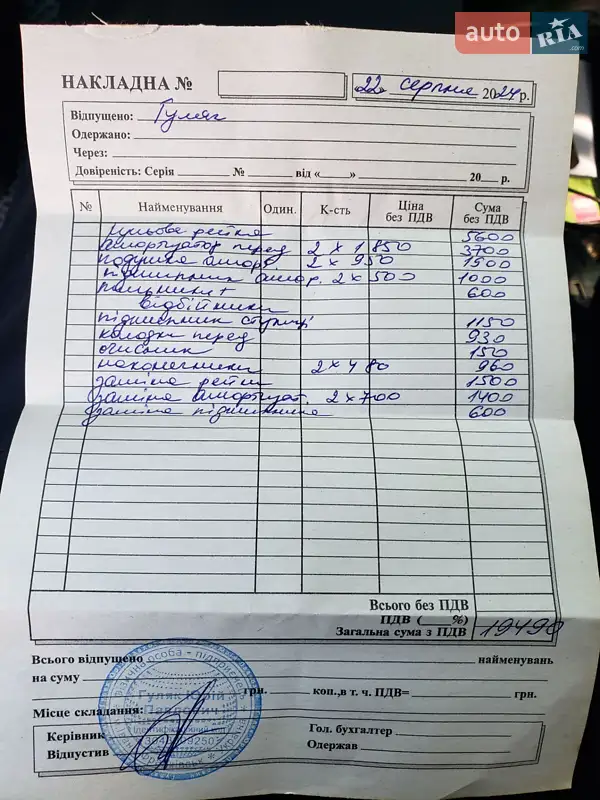 auto RIA .com
НАКЛАДНА № 22 серпня 2024 р.
Відпущено: Гуляк
Одержано:
Через:
Довіреність: Серія № від « » 20 р.
№ Найменування Один. К-сть Ціна без ПДВ Сума без ПДВ
рульова рейка 5600
амортизатор перед 2 x 1 850 3700
подушка аморт. 2 x 950 1500
підшипник амор. 2 x 500 1000
пильники + 600
відбійники
підшипник ступиці 1150
колодки перед 930
очисник 150
наконечники 2 x 480 960
заміна рейки 1500
заміна амортизат. 2 x 700 1400
заміна підшипника 600
Всього без ПДВ
ПДВ ( %)
Загальна сума з ПДВ 19490
Всього відпущено найменувань
на суму грн. коп.,в т. ч. ПДВ= грн.
Місце складання:
Керівник Гол. бухгалтер
Відпустив Одержав